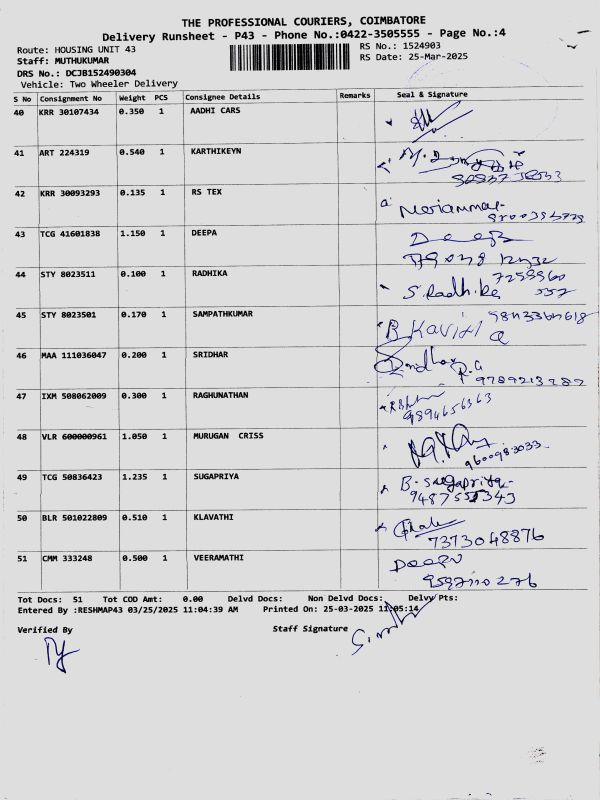 THE PROFESSIONAL COURIERS, COIMBATORE
Delivery Runsheet - P43 - Phone No.:0422-3505555 - Page No.:4
Route: HOUSING UNIT 43 RS No.: 1524903
Staff: MUTHUKUMAR RS Date: 25-Mar-2025
DRS No.: DCJB152490304
Vehicle: Two Wheeler Delivery
S No Consignment No Weight PCS Consignee Details Remarks Seal & Signature
40 KRR 30107434 0.350 1 AADHI CARS
41 ART 224319 0.540 1 KARTHIKEYN
42 KRR 30093293 0.135 1 RS TEX
43 TCG 41601838 1.150 1 DEEPA
44 STY 8023511 0.100 1 RADHIKA
S. Radhika
45 STY 8023501 0.170 1 SAMPATHKUMAR
B. Kavitha
46 MAA 111036047 0.200 1 SRIDHAR
Sridhar
9789213282
47 IXM 508062009 0.300 1 RAGHUNATHAN
9894656363
48 VLR 600000961 1.050 1 MURUGAN CRISS
9600983033
49 TCG 50836423 1.235 1 SUGAPRIYA
B. Sugapriya
9487555343
50 BLR 501022809 0.510 1 KLAVATHI
7373048876
51 CMM 333248 0.500 1 VEERAMATHI
Tot Docs: 51 Tot COD Amt: 0.00 Delvd Docs: Non Delvd Docs: Delvy Pts:
Entered By :RESHMAP43 03/25/2025 11:04:39 AM Printed On: 25-03-2025 11:05:14
Verified By Staff Signature